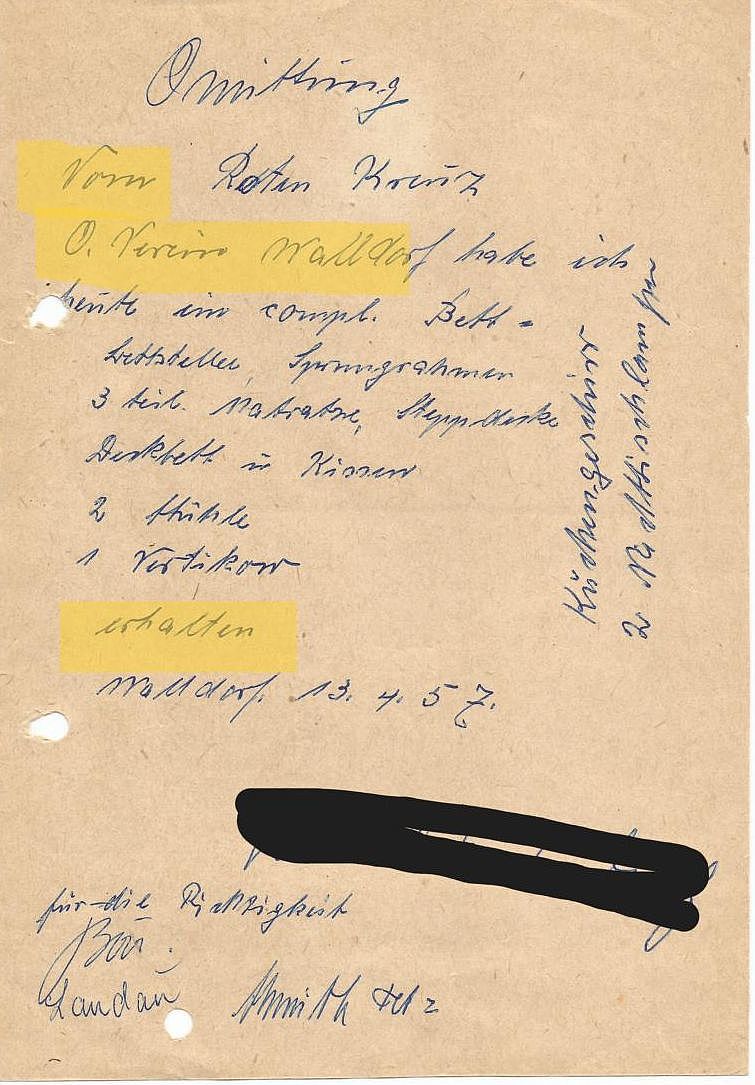 Quittung
Vom Roten Kreuz
O. Verein Walldorf habe ich
heute ein compl. Bett =
Bettstelle, Sprungrahmen
3 teil. Matratze, Steppdecke
Deckbett u Kissen
2 Stühle
1 Vertikow
erhalten
Walldorf. 13. 4. 57.
Küchengeschirr
2 Nachttischlampen
für die Richtigkeit
Landau